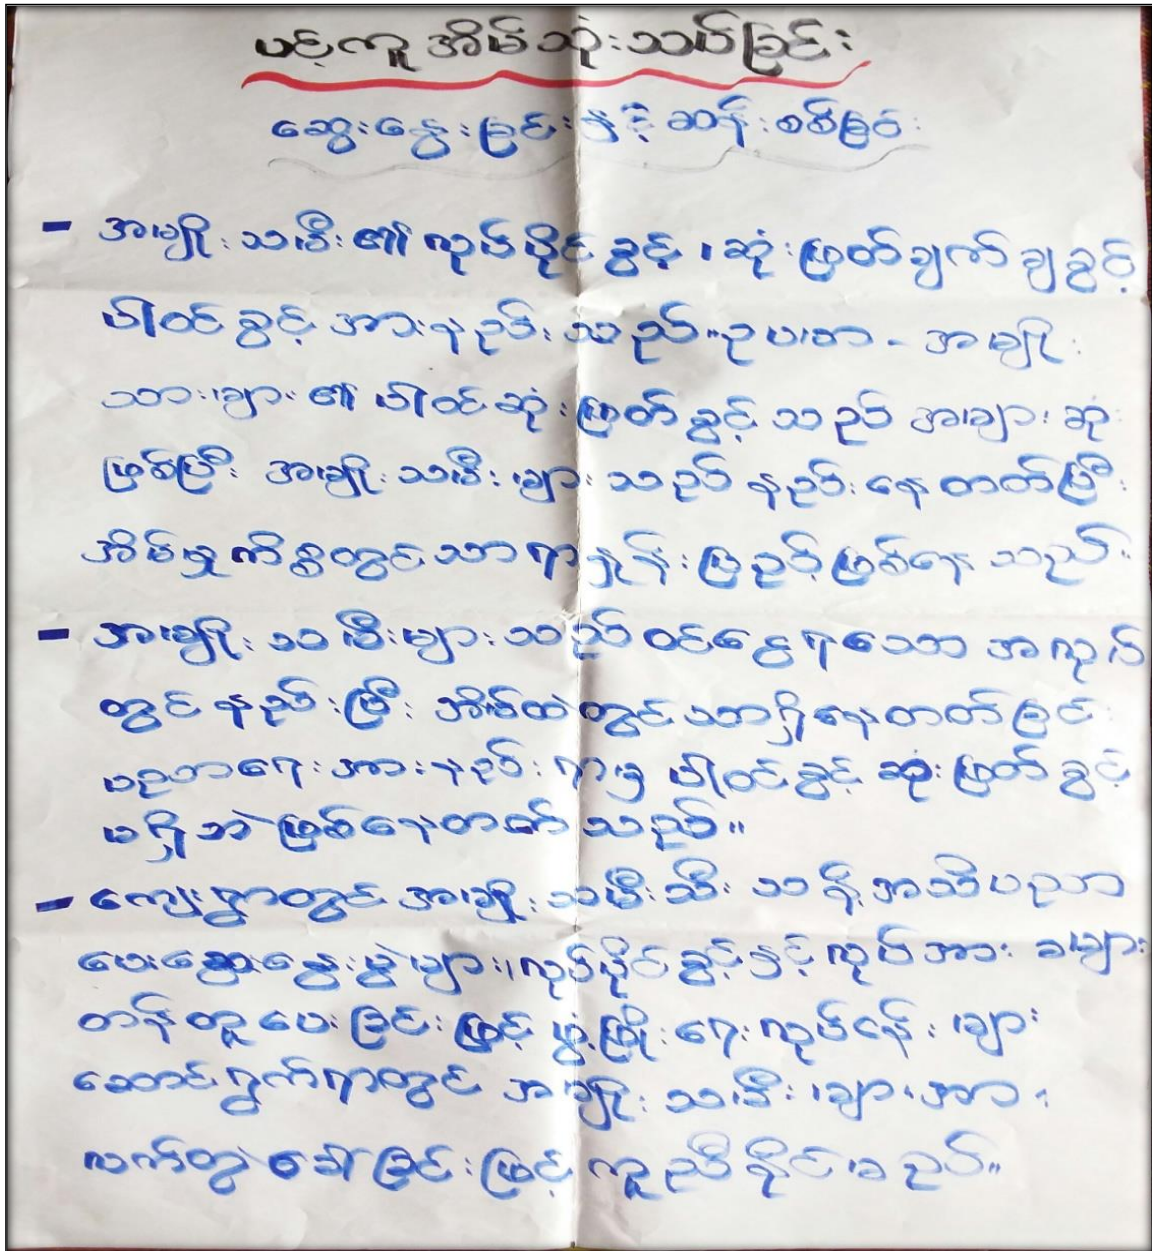 ပင့်ကူအိမ်သုံးသပ်ခြင်း
ဆွေးနွေးခြင်းနှင့် ဆန်းစစ်ခြင်း
- အမျိုးသမီး၏ လုပ်ပိုင်ခွင့်၊ ဆုံးဖြတ်ချက်ချခွင့်
ပါဝင်ခွင့် အားနည်းသည်။ ဥပမာ - အမျိုး
သားများ၏ ပါဝင်ဆုံးဖြတ်ခွင့်သည် အများဆုံး
ဖြစ်ပြီး အမျိုးသမီးများသည် နည်းနေတတ်ပြီး
အိမ်မှုကိစ္စတွင်သာ ရာနှုန်းပြည့်ဖြစ်နေသည်။
- အမျိုးသမီးများသည် ဝင်ငွေရသော အလုပ်
တွင် နည်းပြီး အိမ်ထဲတွင်သာရှိနေတတ်ခြင်း
ပညာရေးအားနည်းရာမှ ပါဝင်ခွင့် ဆုံးဖြတ်ခွင့်
မရှိဘဲ ဖြစ်နေတတ်သည်။
- ကျေးရွာတွင် အမျိုးသမီးသီးသန့် အသိပညာ
ပေးဆွေးနွေးပွဲများ၊ လုပ်ပိုင်ခွင့်နှင့် လုပ်အားခများ
တန်းတူပေးခြင်းဖြင့် ဖွံ့ဖြိုးရေးလုပ်ငန်းများ
ဆောင်ရွက်ရာတွင် အမျိုးသမီးများအား
လက်တွဲခေါ်ခြင်းဖြင့် ကူညီနိုင်မည်။